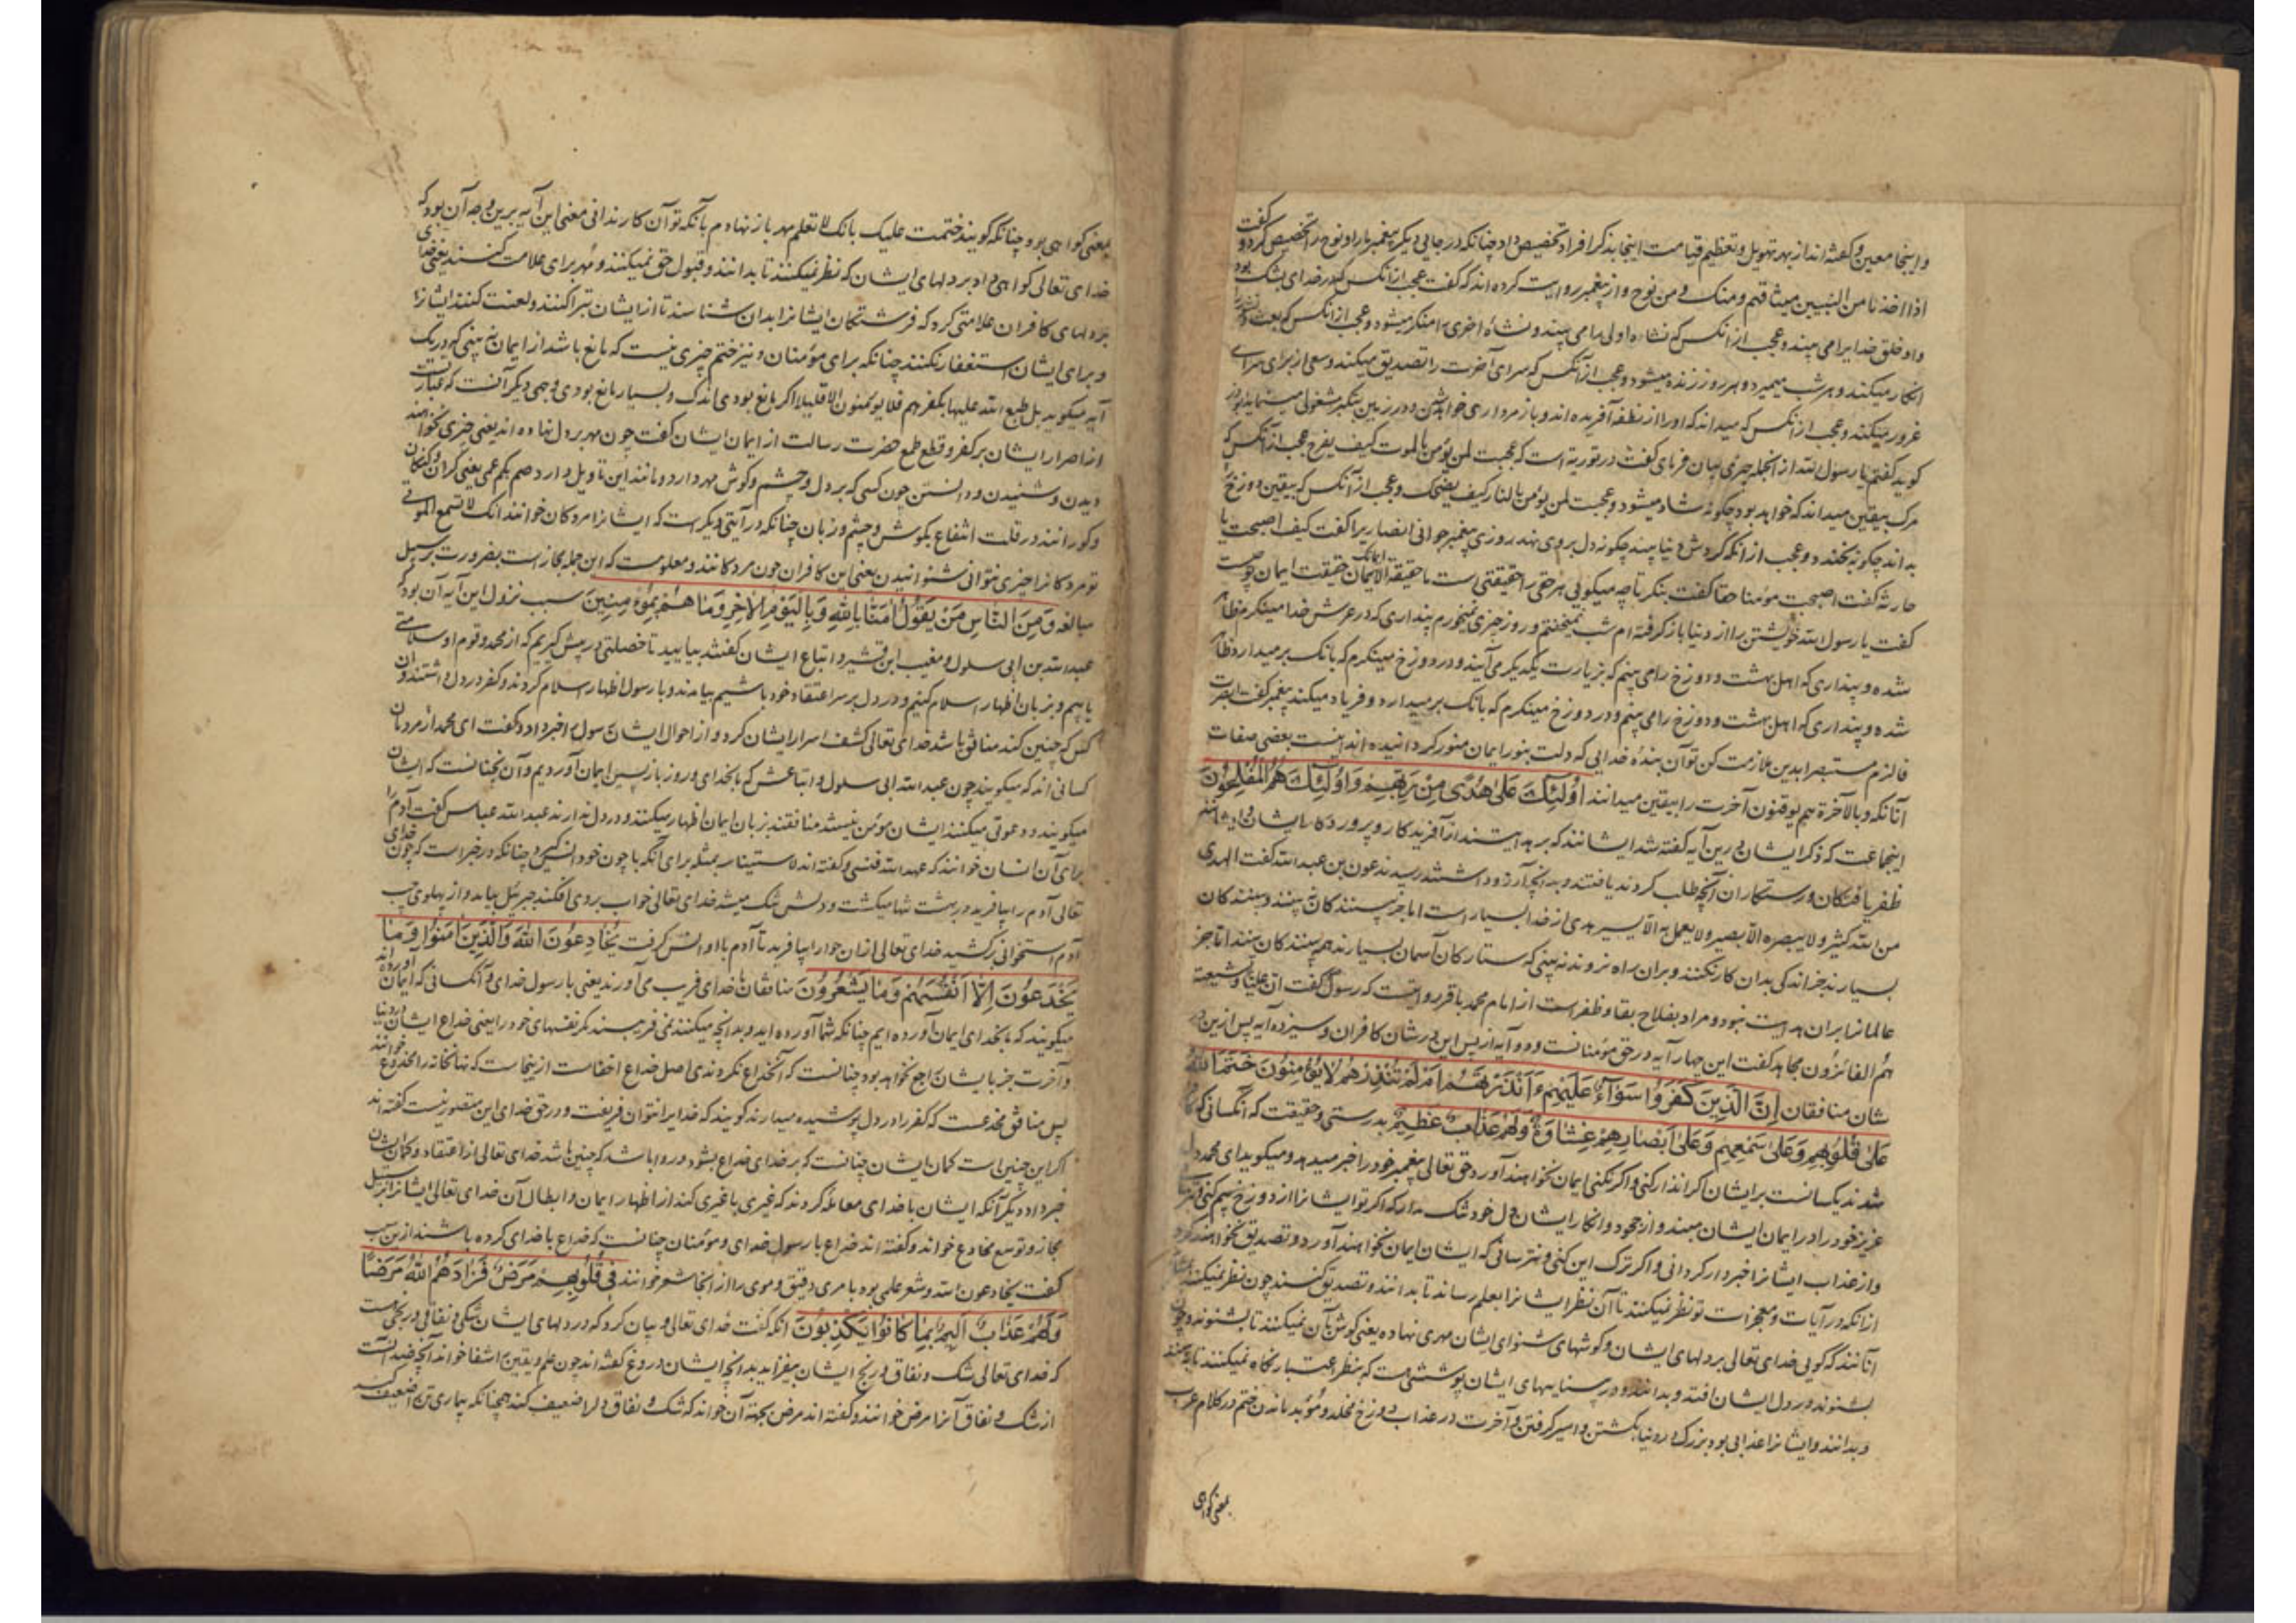 و اینجا معین و گفته‌اند از بهر تهویل و تعظیم قیامت اینجا بذکر افراد تخصیص داد چنانکه در جایی دیگر پیغمبر ما را و نوح را تخصیص کرد و گفت
اذا اخذنا من النبیین میثاقهم و منک و من نوح و از پیغمبر روایت کرده‌اند که گفت عجب از آنکس که در خدای بشک بود
و او خلق خدایرا می‌بیند و عجب از آنکس که نشاه اولی را می‌بیند و نشاه اخری را منکر میشود و عجب از آنکس که بعث و نشر را
انکار میکند و هر شب میمیرد و هر روز زنده میشود و عجب از آنکس که سرای آخرت را تصدیق میکند و سعی از برای سرای
غرور میکند و عجب از آنکس که میداند که او را از نطفه آفریده‌اند و باز مرداری خواهد شدن و در زمین بتکبر مشغولی مینماید
کوید گفتم یا رسول الله از انجمله چیزی بیان فرمای گفت در توریة است که عجبت لمن یؤمن بالموت کیف یفرح عجب از آنکس که
مرگ بیقین میداند که خواهد بود چگونه شاد میشود و عجبت لمن یؤمن بالنار کیف یضحک و عجب از آنکس که بیقین دوزخ را
بداند چگونه بخندد و عجب از آنکه گردش دنیا بیند چگونه دل بر وی نهد روزی پیغمبر جوانی انصاری را گفت کیف اصبحت یا
حارثه گفت اصبحت مؤمنا حقا گفت بنگر تا چه میگویی هر حقی را حقیقتی است ما حقیقة ایمانک حقیقت ایمان تو چیست
گفت یا رسول الله خویشتن را از دنیا باز گرفته‌ام شب نمیخفتم و روز چیزی نمیخورم پنداری که در عرش خدا مینگرم ظاهر
شده و پنداری که اهل بهشت و دوزخ را می‌بینم که بزیارت یکدیگر می‌آیند و در دوزخ مینگرم که بانگ برمیدارد ظاهر
شده و پنداری که اهل بهشت و دوزخ را می‌بینم و در دوزخ مینگرم که بانگ برمیدارد و فریاد میکند پیغمبر گفت ابصرت
فالزم مستبصرا بدین ملازمت کن تو آن بنده خدایی که دلت بنور ایمان منور گردانیده‌اند اینست بعضی صفات
آنانکه و بالآخرة هم یوقنون آخرت را بیقین میدانند اُولٰئِکَ عَلیٰ هُدًی مِنْ رَبِّهِمْ وَاُولٰئِکَ هُمُ الْمُفْلِحُونَ
اینجماعت که ذکر ایشان درین آیه گفته شد ایشانند که بر هدایتند از آفریدگار و پروردگار ایشان و ایشانند
ظفر یافتگان و رستگاران آنچه طلب کردند یافتند و بدانچه آرزو داشتند رسیدند عون بن عبد الله گفت الهدی
من الله کثیر و لا یبصره الا بصیر و لا یعمل به الا یسیر هدی از خدا بسیار است اما جز بینندگان نبینند و بینندگان
بسیارند جز اندکی بدان کار نکنند و بران راه نروند نه بینی که ستارگان آسمان بسیارند همه بینندگان بینند اما جز
عالمان بران هدایت نبود و مراد بفلاح بقا و ظفر است از امام محمد باقر روایتست که رسول گفت ان علیا و شیعته
هم الفائزون مجاهد گفت این چهار آیه در حق مؤمنانست و دو آیه از پس این در شان کافران و سیزده آیه پس ازین در
شان منافقان اِنَّ الَّذِینَ کَفَرُوا سَوَآءٌ عَلَیْهِمْ ءَاَنْذَرْتَهُمْ اَمْ لَمْ تُنْذِرْهُمْ لَا یُؤْمِنُونَ خَتَمَ اللهُ
عَلیٰ قُلُوبِهِمْ وَعَلیٰ سَمْعِهِمْ وَعَلیٰ اَبْصَارِهِمْ غِشَاوَةٌ وَلَهُمْ عَذَابٌ عَظِیمٌ بدرستی و حقیقت که آنکسانی که کافر
شدند یکسانست بر ایشان اگر انذار کنی و اگر نکنی ایمان نخواهند آورد حق تعالی پیغمبر خود را خبر میدهد و میگوید ای محمد دل
عزیز خود را در ایمان ایشان مبند و از جحود و انکار ایشان دل خود تنگ مدار که اگر تو ایشانرا از دوزخ بیم کنی
و از عذاب ایشانرا خبردار گردانی و اگر ترک این کنی و نترسانی که ایشان ایمان نخواهند آورد و تصدیق نخواهند کرد
از آنکه در آیات و معجزات تو نظر نمیکنند تا آن نظر ایشانرا بعلم رساند تا بدانند و تصدیق کنند چون نظر نمیکنند
آنانند که گویی خدای تعالی بر دلهای ایشان و گوشهای شنوای ایشان مهری نهاده یعنی گوش بآن نمیکنند تا بشنوند و چون
بشنوند در دل ایشان افتد و بدانند و در بیناییهای ایشان پوششی هست که بنظر اعتبار نگاه نمیکنند تا
و بدانند و ایشانرا عذابی بود بزرگ در دنیا بکشتن و اسیر گرفتن و آخرت در عذاب دوزخ مخلد و مؤبد ماندن ختم در کلام عرب
بمعنی گواهی
بمعنی گواهی بود چنانکه گویند ختمت علیک بانک لا تعلم مهر باز نهادم بآنکه تو آن کار ندانی معنی این آیه برین وجه آن بود که
خدای تعالی گواهی داد بر دلهای ایشان که نظر نمیکنند تا بدانند و قبول حق نمیکنند و مهر برای علامت کنند یعنی خدای
بر دلهای کافران علامتی کرد که فرشتگان ایشانرا بدان شناسند تا از ایشان تبرا کنند و لعنت کنند ایشانرا
و برای ایشان استغفار نکنند چنانکه برای مؤمنان و نیز ختم چیزی نیست که مانع باشد از ایمان نه بینی که در یک
آیه میگوید بل طبع الله علیها بکفرهم فلا یؤمنون الا قلیلا اگر مانع بودی اندک و بسیار مانع بودی وجهی دیگر آنست که عبارتست
از اصرار ایشان بر کفر و قطع طمع حضرت رسالت از ایمان ایشان گفت چون مهر بر دل نهاده‌اند یعنی چیزی نخواهند
دیدن و شنیدن و دانستن چون کسی که بر دل و چشم و گوش مهر دارد و مانند این تاویل دارد صم بکم عمی یعنی کران و گنگان
و کورانند در قلت انتفاع بگوش و چشم و زبان چنانکه در آیتی دیگر است که ایشانرا مردگان خوانند انک لا تسمع الموتی
تو مردگانرا چیزی نتوانی شنوانیدن یعنی این کافران چون مردگانند و معلومست که این جمله مجاز است بضرورت بر سبیل
مبالغه وَمِنَ النَّاسِ مَنْ یَقُولُ اٰمَنَّا بِاللهِ وَبِالْیَوْمِ الْاٰخِرِ وَمَا هُمْ بِمُؤْمِنِینَ سبب نزول این آیه آن بود که
عبد الله بن ابی سلول و مغیب ابن قشیر و اتباع ایشان گفتند بیایید تا خصلتی در پیش گیریم که از محمد و قوم او سلامتی
یابیم و بزبان اظهار اسلام کنیم و در دل بر سر اعتقاد خود باشیم بیامدند و با رسول اظهار اسلام کردند و کفر در دل داشتند و آن
کس که چنین کند منافق باشد خدای تعالی کشف اسرار ایشان کرد و از احوال ایشان رسول را خبر داد و گفت ای محمد از مردمان
کسانی‌اند که میگویند چون عبد الله ابی سلول و اتباعش که بخدای و روز بازپسین ایمان آوردیم و آن نچنانست که ایشان
میگویند و دعوتی میکنند ایشان مؤمن نیستند منافقند بزبان ایمان اظهار میکنند و در دل ندارند عبد الله عباس گفت آدم را
برای آن انسان خوانند که عهد الله فنسی و گفته‌اند لاستیناسه بمثله برای آنکه با چون خود انس گیرد چنانکه در خبر است که چون خدای
تعالی آدم را بیافرید در بهشت تنها میگشت و دلش تنگ میشد خدای تعالی خواب بر وی افکند جبرئیل بیامد و از پهلوی چپ
آدم استخوانی برکشید خدای تعالی از آن حوا را بیافرید تا آدم با او انس گرفت یُخَادِعُونَ اللهَ وَالَّذِینَ اٰمَنُوا وَمَا
یَخْدَعُونَ اِلَّا اَنْفُسَهُمْ وَمَا یَشْعُرُونَ منافقان با خدای فریب می‌آورند یعنی با رسول خدای و آنکسانی که ایمان آورده‌اند
میگویند که ما بخدای ایمان آورده‌ایم چنانکه شما آورده‌اید و بدانچه میکنند نمی‌فریبند مگر نفسهای خود را یعنی خداع ایشان در دنیا
و آخرت جز با ایشان راجع نخواهد بود چنانست که آنخداع نکردندی اصل خداع اخفاست ازینجاست که نهانخانه را مخدع خوانند
پس منافق مخدعست که کفر را در دل پوشیده میدارند گویند که خدایرا نتوان فریفت و در حق خدای این متصور نیست گفته‌اند
اگر این چنین است گمان ایشان چنانست که بر خدای خداع بشود و روا باشد که چنین باشد خدای تعالی از اعتقاد و گمان ایشان
خبر داد دیگر آنکه ایشان با خدای معامله کردند که غیری با غیری کند از اظهار ایمان و ابطال آن خدای تعالی ایشانرا بر سبیل
مجاز و توسع مخادع خواند و گفته‌اند خداع با رسول خدای و مؤمنان چنانست که خداع با خدای کرده باشند ازین سبب
گفت یخادعون الله و شعر علمی بود بامری دقیق و موی را از آنجا شعر خوانند فِی قُلُوبِهِمْ مَرَضٌ فَزَادَهُمُ اللهُ مَرَضًا
وَلَهُمْ عَذَابٌ اَلِیمٌ بِمَا کَانُوا یَکْذِبُونَ آنکه گفت خدای تعالی و بیان کرد که در دلهای ایشان شکی و نفاقی و رنجی هست
که خدای تعالی شک و نفاق و رنج ایشان بیفزاید بدانچه ایشان دروغ گفته‌اند چون علم و یقین را شفا خواند آنچه ضد آنست
از شک و نفاق آنرا مرض خوانند و گفته‌اند مرض بجهة آن خواند که شک و نفاق دل را ضعیف کند همچنانکه بیماری تن را ضعیف کند